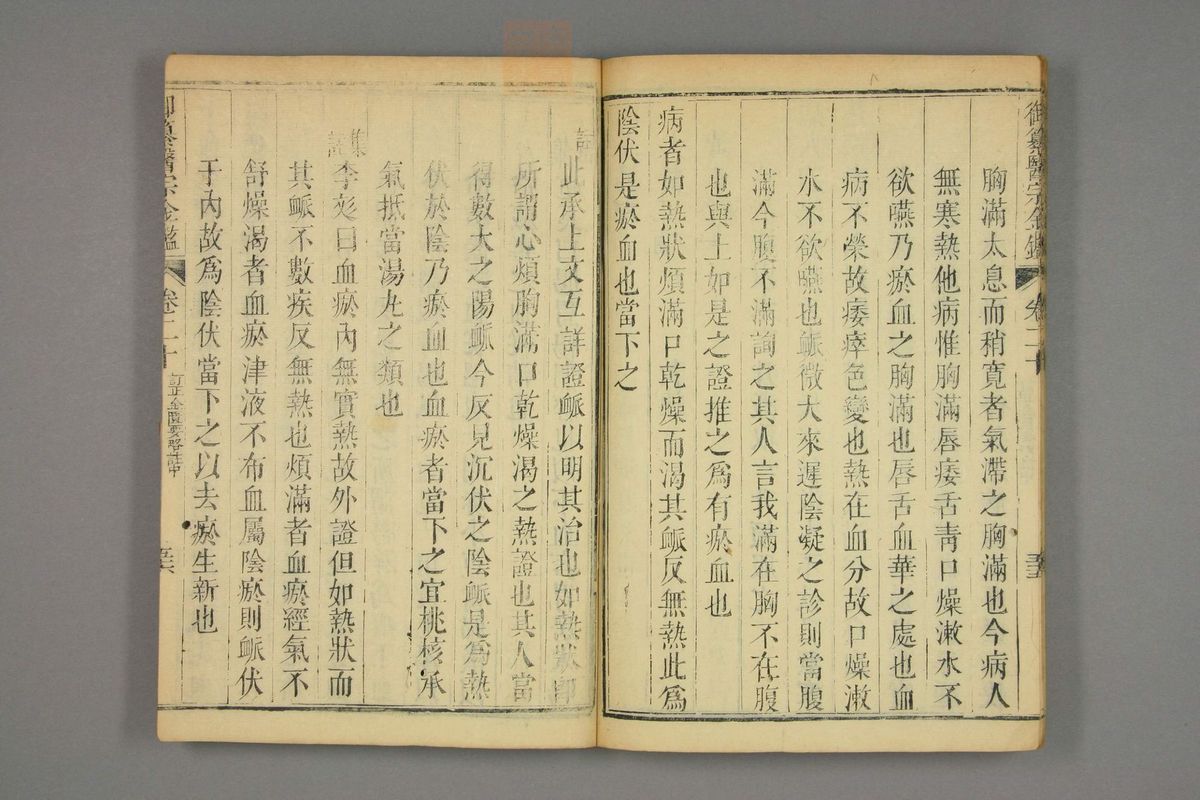 御纂醫宗金鑑 卷二十 五五
胸滿太息而稍寬者氣滯之胸滿也今病人
無寒熱他病惟胸滿唇痿舌青口燥漱水不
欲嚥乃瘀血之胸滿也唇舌血華之處也血
病不榮故痿瘁色變也熱在血分故口燥漱
水不欲嚥也脈微大來遲陰凝之診則當腹
滿今腹不滿詢之其人言我滿在胸不在腹
也與上如是之證推之為有瘀血也
病者如熱狀煩滿口乾燥而渴其脈反無熱此爲
陰伏是瘀血也當下之
註此承上文互詳證脈以明其治也如熱狀即
所謂心煩胸滿口乾燥渴之熱證也其人當
得數大之陽脈今反見沉伏之陰脈是為熱
伏於陰乃瘀血也血瘀者當下之宜桃核承
氣抵當湯丸之類也
集註李彣曰血瘀內無實熱故外證但如熱狀而
其脈不數疾反無熱也煩滿者血瘀經氣不
舒燥渴者血瘀津液不布血屬陰瘀則脈伏
于內故爲陰伏當下之以去瘀生新也
御纂醫宗金鑑 卷二十 訂正金匱要略註中 五六